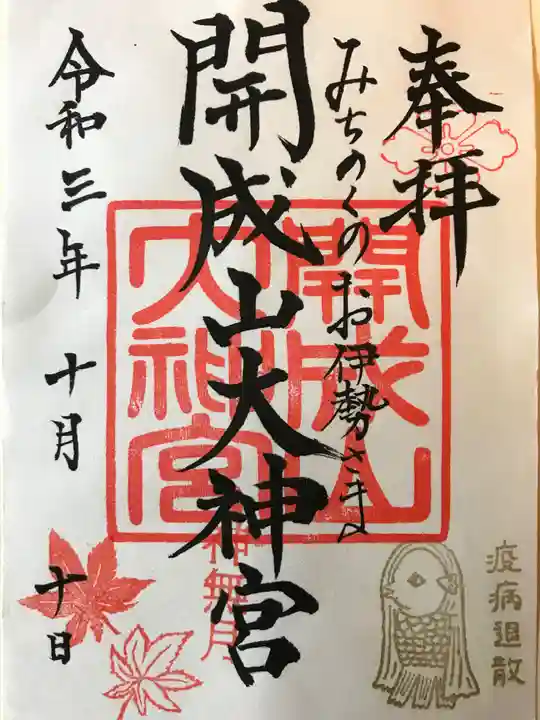 奉拝
みちのくのお伊勢さま
開成山大神宮
開成山
大神宮
神無月
令和三年 十月 十日
疫病退散